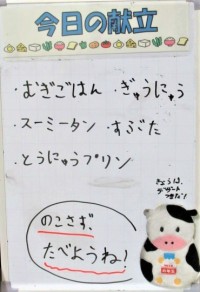 今日の献立
・むぎごはん ・ぎゅうにゅう
・スーミータン ・すぶた
・とうにゅうプリン
のこさず、
たべようね!
きょうは、
デザート
つきだよ!